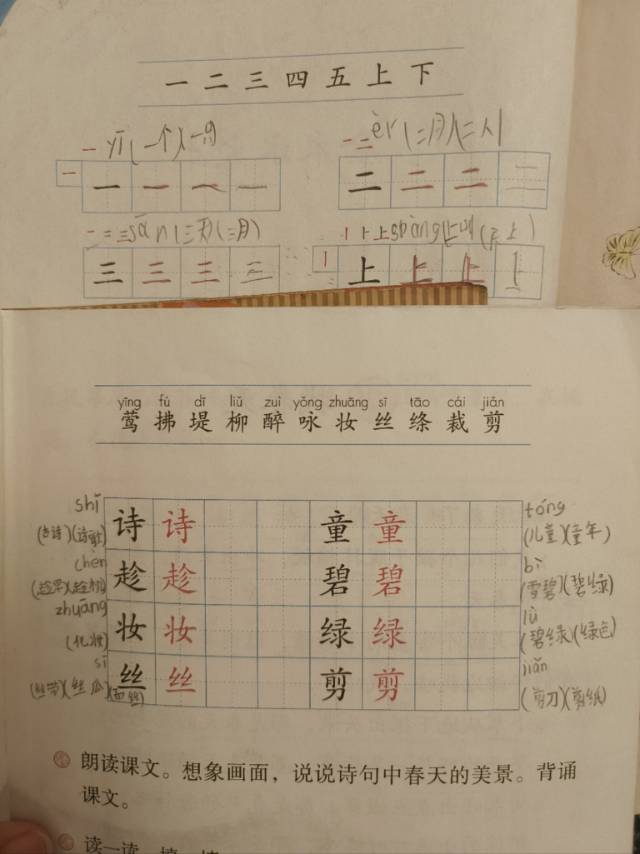 一 二 三 四 五 上 下
一 yī(一个)(一
一二 èr(二月)(二人)
一 一 一 一 一
二 二 二 二
一 二 三 sān(三天)(三月)
丨 卜 上 shàng
三 三 三 三
丨 上 上 上 上
yīng fú dī liǔ zuì yǒng zhuāng sī tāo cái jiǎn
莺 拂 堤 柳 醉 咏 妆 丝 绦 裁 剪
shī 诗 诗 童 童 tóng
(古诗) (儿童)(童年)
chèn 趁 趁 碧 碧 bì
(碧绿)
zhuāng 妆 妆 绿 绿 lǜ
(化妆) (碧绿)(绿色)
sī 丝 丝 剪 剪 jiǎn
(丝带)(丝瓜) (剪刀)(剪纸)
朗读课文。想象画面，说说诗句中春天的美景。背诵
课文。
读一读